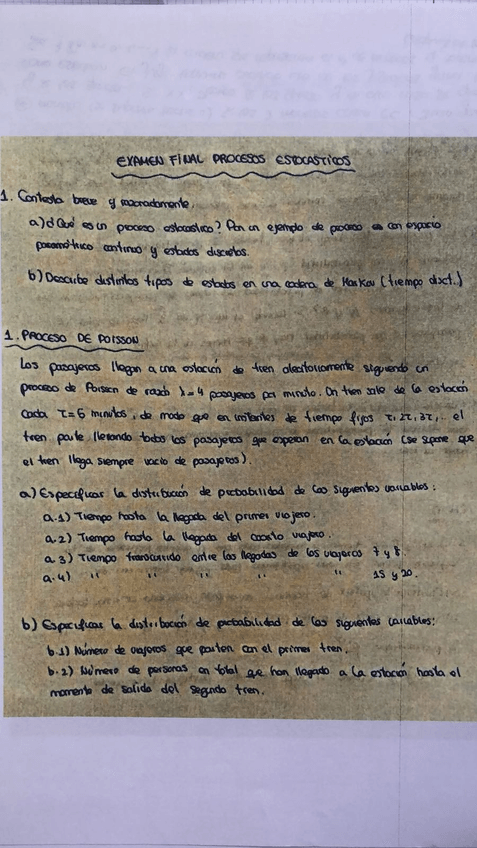 EXAMEN FINAL PROCESOS ESTOCASTICOS
1. Contesta breve y razonadamente.
a) ¿Qué es un proceso estocastico? Pon un ejemplo de proceso es con espacio
paramétrico continuo y estados discretos.
b) Describe distintos tipos de estados en una cadena de Markov (tiempo disct.)
1. PROCESO DE POISSON
Los pasajeros llegan a una estación de tren aleatoriamente siguiendo un
proceso de Poisson de λ=4 pasajeros por minuto. Un tren sale de la estación
cada τ=5 minutos, de modo que en instantes de tiempo fijos τ, 2τ, 3τ,... el
tren parte llevando todos los pasajeros que esperan en la estación (se supone que
el tren llega siempre vacio de pasajeros).
a) Especificar la distribución de probabilidad de las siguientes variables:
a.1) Tiempo hasta la llegada del primer viajero.
a.2) Tiempo hasta la llegada del cuarto viajero.
a.3) Tiempo transcurrido entre las llegadas de los viajeros 7 y 8.
a.4) " " " " " 15 y 20.
b) Especificar la distribución de probabilidad de las siguientes variables:
b.1) Número de viajeros que parten con el primer tren.
b.2) Número de personas en total que han llegado a la estación hasta el
momento de salida del segundo tren.